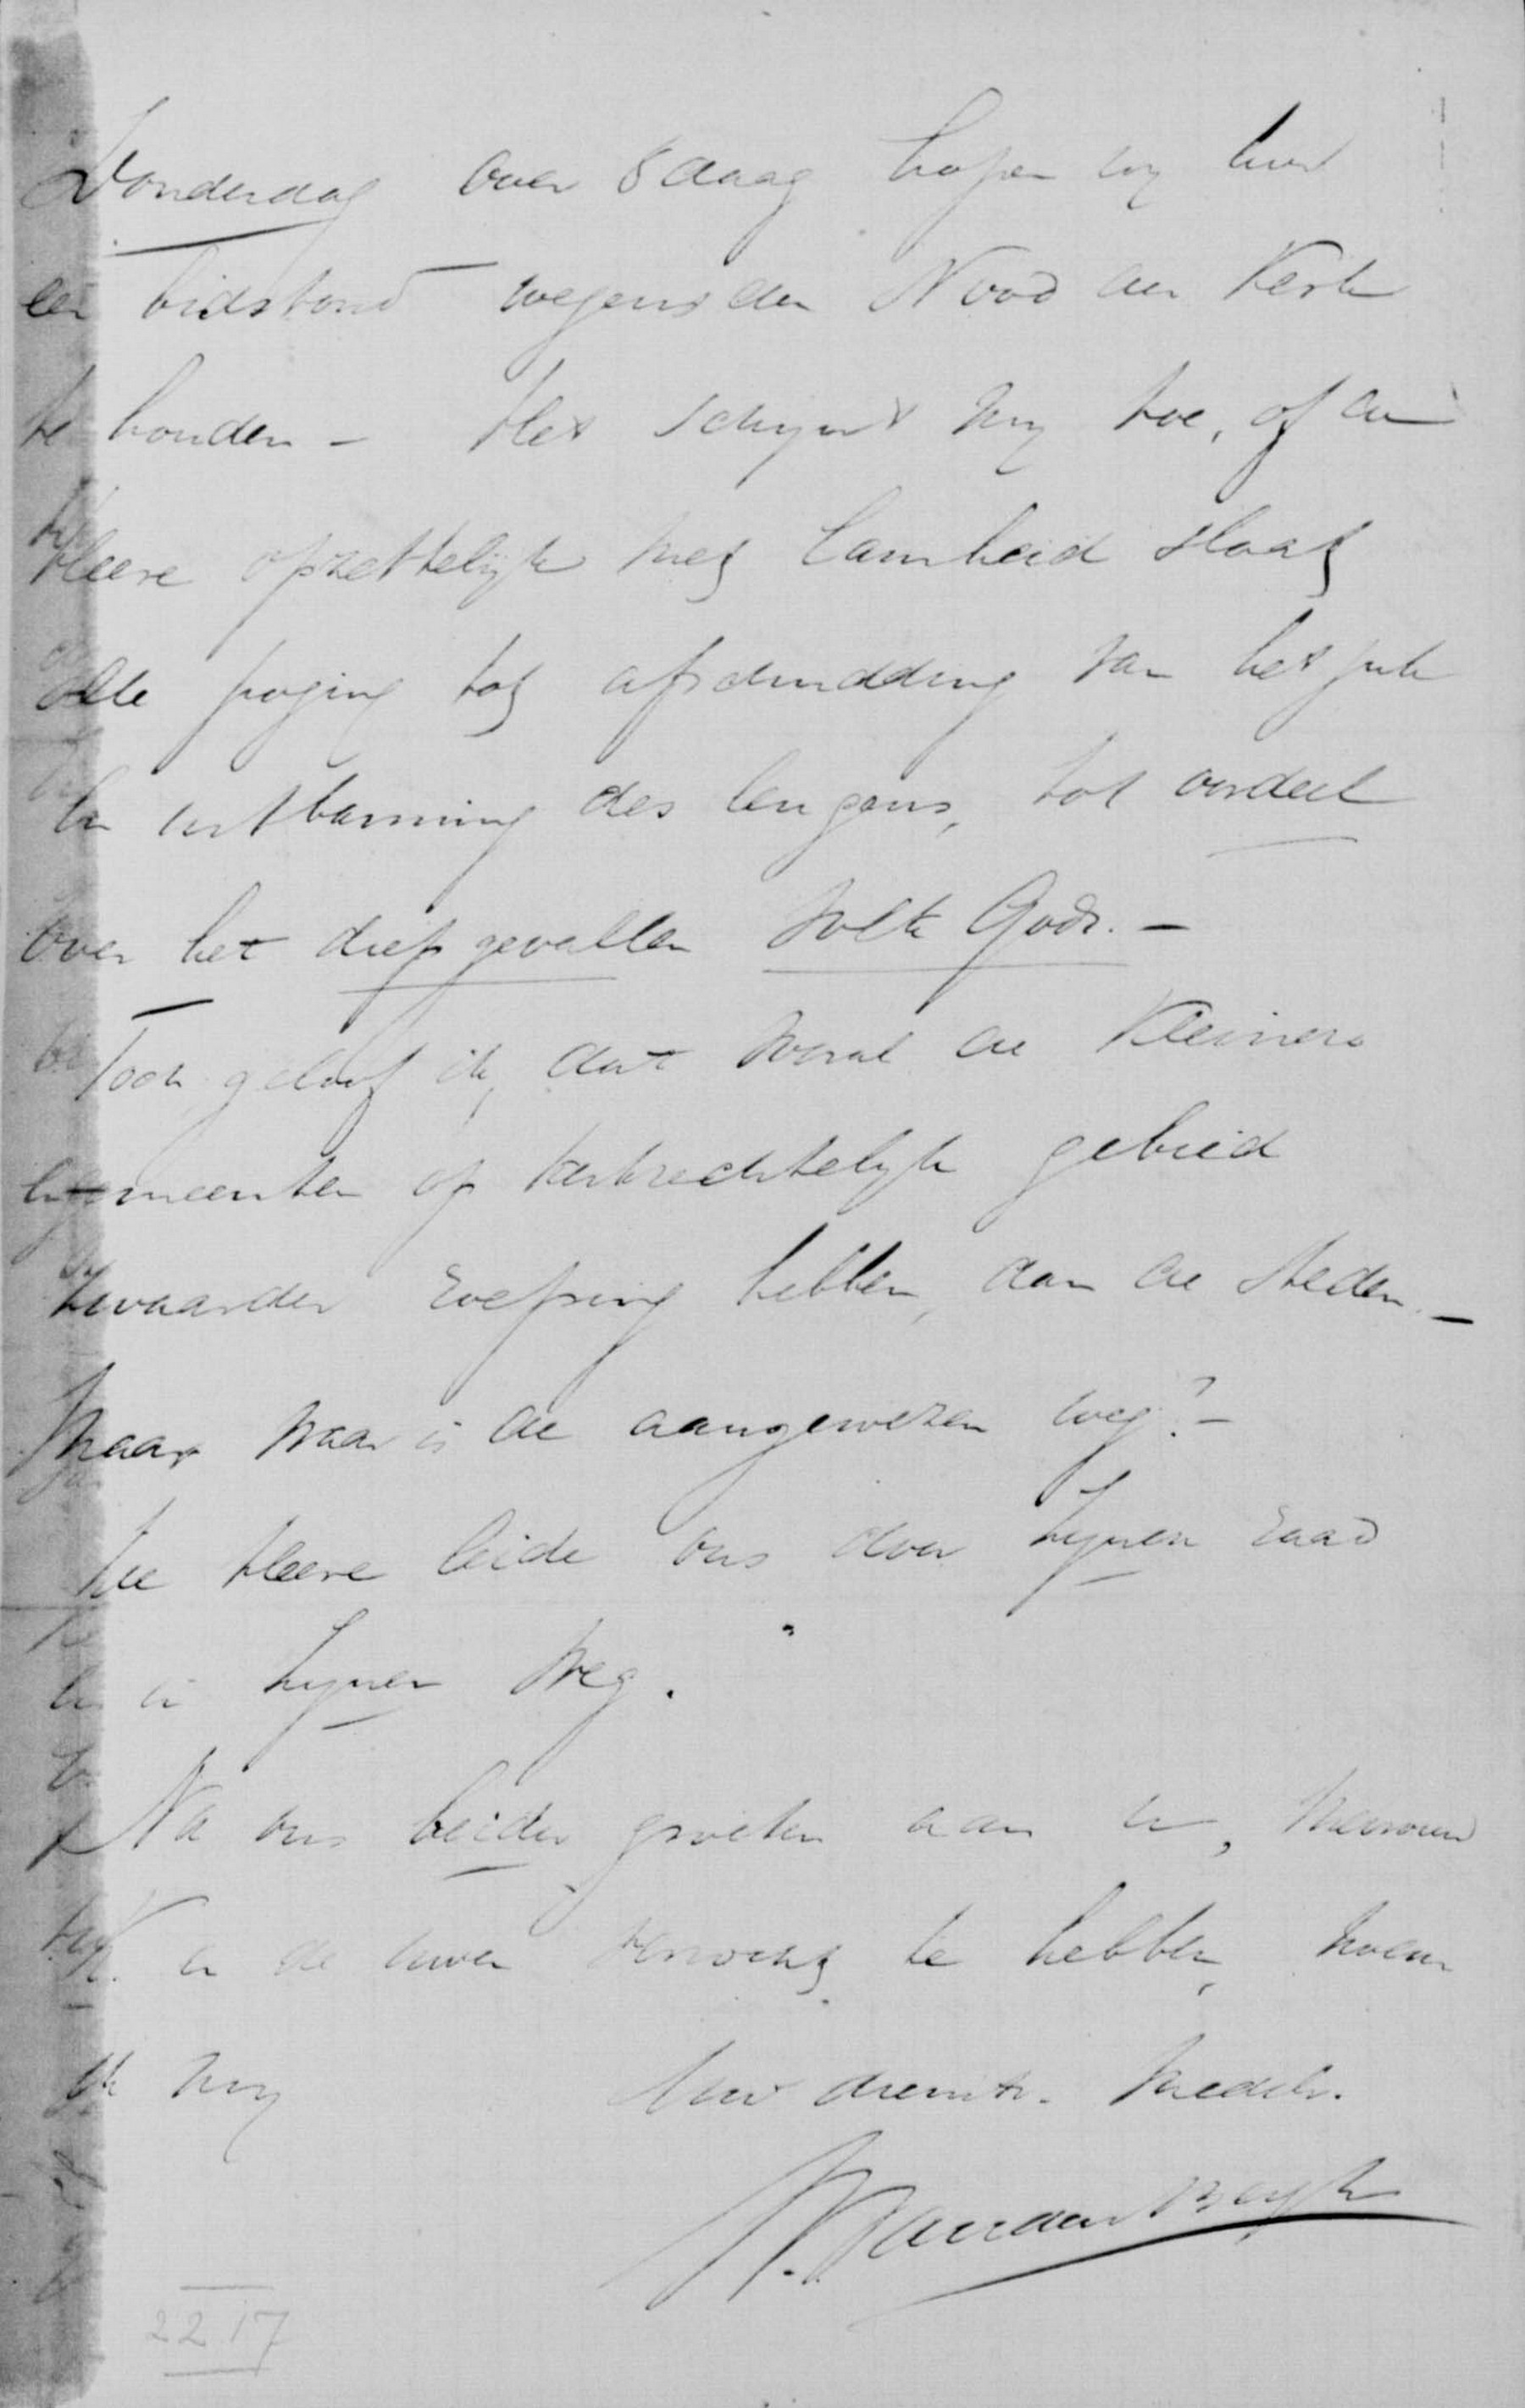 Donderdag over 8 daag hopen wy hier
een bidstond wegens den Nood der Kerk
te houden – Het schynt my toe, of de
Heere opzettelyk met lamheid slaat
alle poging tot afschudding van het juk
en uitbanning des leugens, tot oordeel
over het diep gevallen Volk Gods. –
Toch geloof ik, dat vooral de Kleinere
gemeenten op kerkrechtelyk gebied
zwaarder roeping hebben, dan de steden. –
Maar waar is de aangewezen weg? –
De Heere leide ons door Zynen raad
en in Zynen Weg.
Na ons beider groeten aan U, Mevrouw
en de uwen verzocht te hebben, noem
ik my Uw dienstv. Medebr.
2217